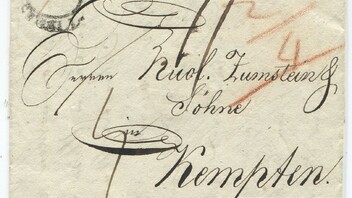 2
4
Herren Nicol. Zumstein &
Söhne
in
Kempten.